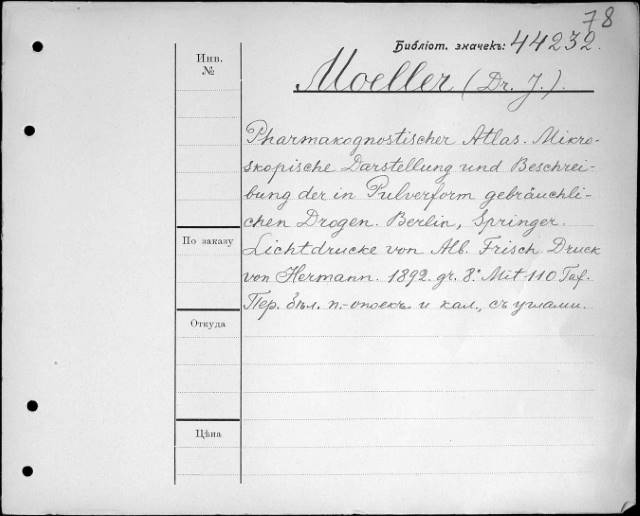 78
Библіот. значекъ: 44232.
Инв.
№
Moeller (Dr. J.).
Pharmakognostischer Atlas. Mikro-
skopische Darstellung und Beschrei-
bung der in Pulverform gebräuchli-
chen Drogen. Berlin, Springer.
По заказу
Lichtdrucke von Alb. Frisch Druck
von Hermann. 1892. gr. 8.° Mit 110 Taf.
Пер. бѣл. п.-опоекъ и кал., съ углами.
Откуда
Цѣна